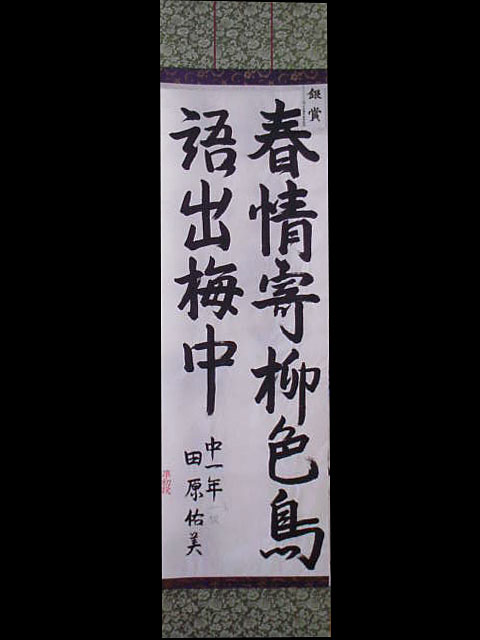 銀賞
春情寄柳色鳥
語出梅中
中一年
田原佑美